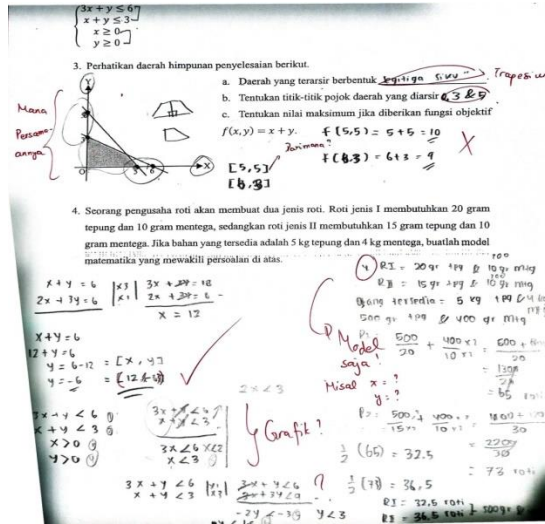 3x + y ≤ 6
x + y ≤ 3
x ≥ 0
y ≥ 0
3. Perhatikan daerah himpunan penyelesaian berikut.
a. Daerah yang terarsir berbentuk segitiga siku" Trapesium
b. Tentukan titik-titik pojok daerah yang diarsir 3 & 5
c. Tentukan nilai maksimum jika diberikan fungsi objektif
f(x, y) = x + y. f(5,5) = 5 + 5 = 10
Darimana? f(6.3) = 6+3 = 9
[5,5]
[6,3]
Mana
Persama-
annya
Y
X
0
3 6
4. Seorang pengusaha roti akan membuat dua jenis roti. Roti jenis I membutuhkan 20 gram
tepung dan 10 gram mentega, sedangkan roti jenis II membutuhkan 15 gram tepung dan 10
gram mentega. Jika bahan yang tersedia adalah 5 kg tepung dan 4 kg mentega, buatlah model
matematika yang mewakili persoalan di atas.
x + y = 6 |x3| 3x + 3y = 18
2x + 3y = 6 |x1| 2x + 3y = 6 -
x = 12
x + y = 6
12 + y = 6
y = 6-12 = [x, y]
y = -6 = [12, -6]
2x < 3
3x + y < 6
x + y < 3
x > 0
y > 0
3x + y < 6
x + y < 3
3x < 6 x < 2
x < 3
Grafik?
3x + y < 6 |x1| 3x + y < 6
x + y < 3 |x3| 3x + 3y < 9
-2y < -3 y < 3
4) RI = 20 gr tpg & 10 gr mtg
RII = 15 gr tpg & 10 gr mtg
yang tersedia = 5 kg tpg & 4 kg
500 gr tpg & 400 gr mtg
Model
saja!
Misal x = ?
y = ?
500/20 + 400 x2/10 x2 =
= 65 roti
500/15 x2 +
= 73 roti
1/2 (65) = 32.5
1/2 (73) = 36,5
RI = 32,5 roti
RII = 36.5 roti